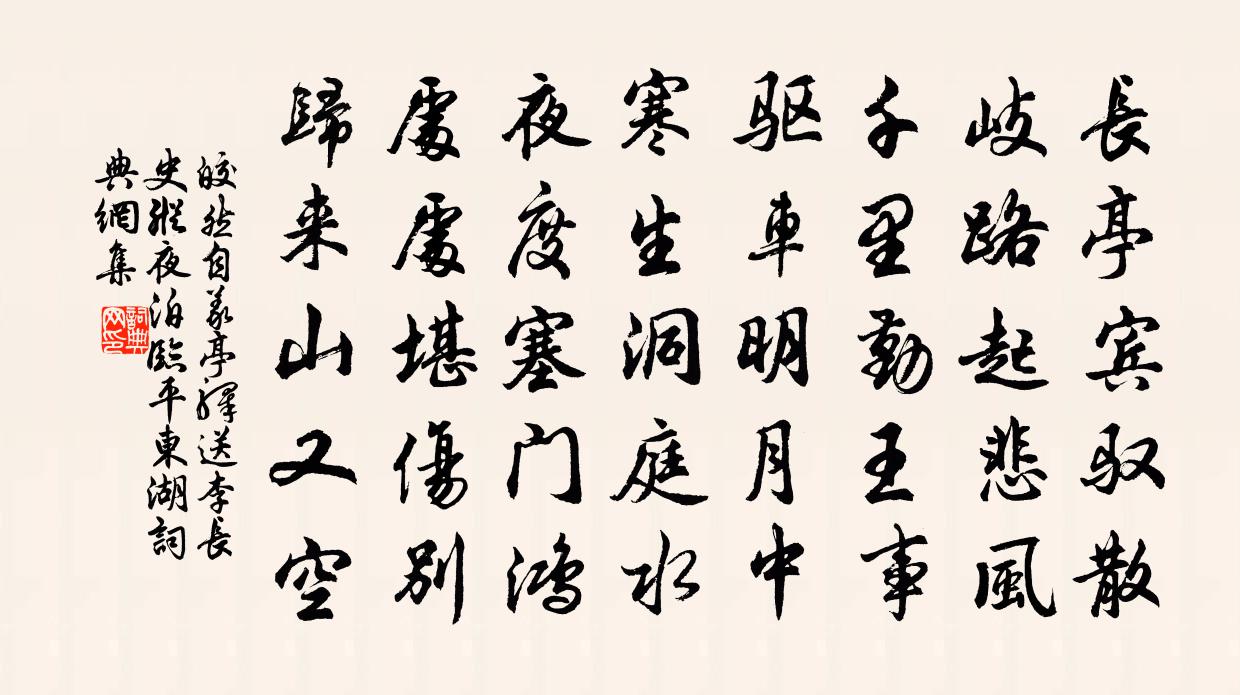 長亭宾驭散
岐路起悲風
千里勤王事
驱車明月中
寒生洞庭水
夜度塞门鸿
處處堪傷别
歸来山又空
皎然自義亭驛送李長
史縱夜泊臨平東湖詞
典網集
詞典网印